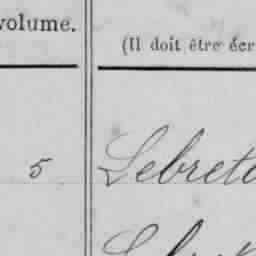 volume.
(Il doit être écr
5 Lebreto